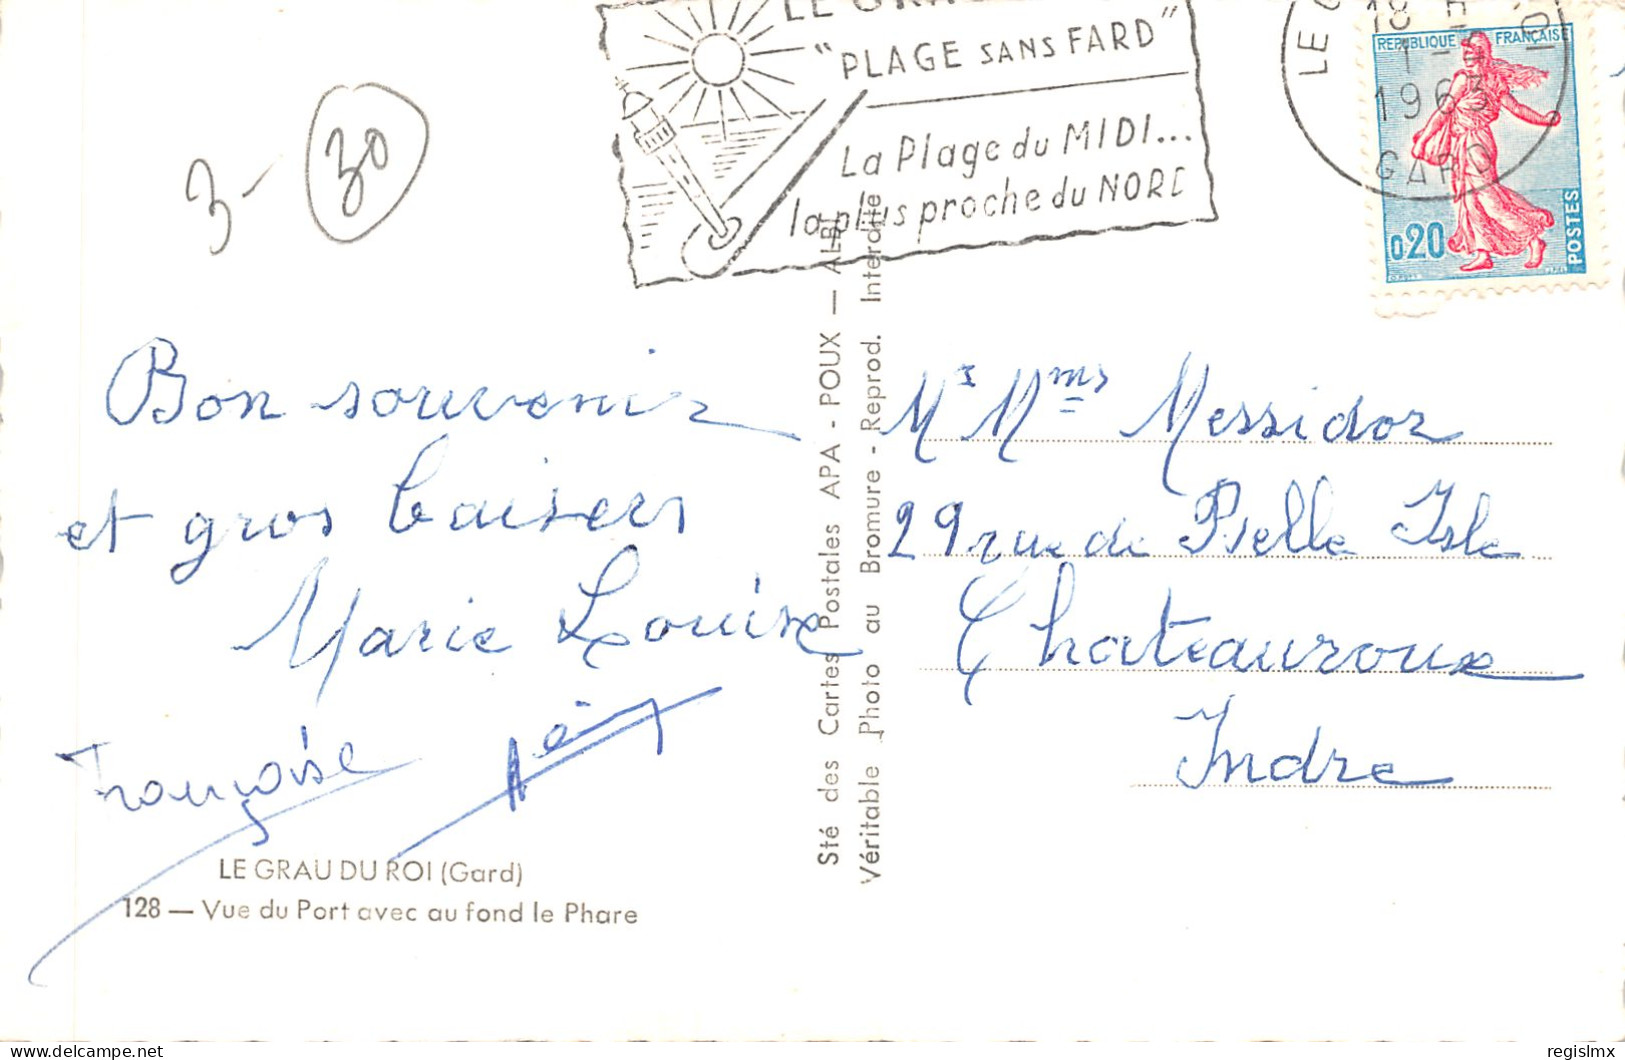 3- 30
"PLAGE SANS FARD"
La Plage du MIDI...
la plus proche du NORD
18 H
1-
1963
GARD
REPUBLIQUE FRANÇAISE
0,20
POSTES
Bon souvenir
et gros baisers
Marie Louise
Françoise
LE GRAU DU ROI (Gard)
128 — Vue du Port avec au fond le Phare
Sté des Cartes Postales APA - POUX — ALBI
Véritable Photo au Bromure - Reprod. Interdite
Mr Mme Messidor
29 rue de Belle Isle
Chateauroux
Indre
delcampe.net
regislmx